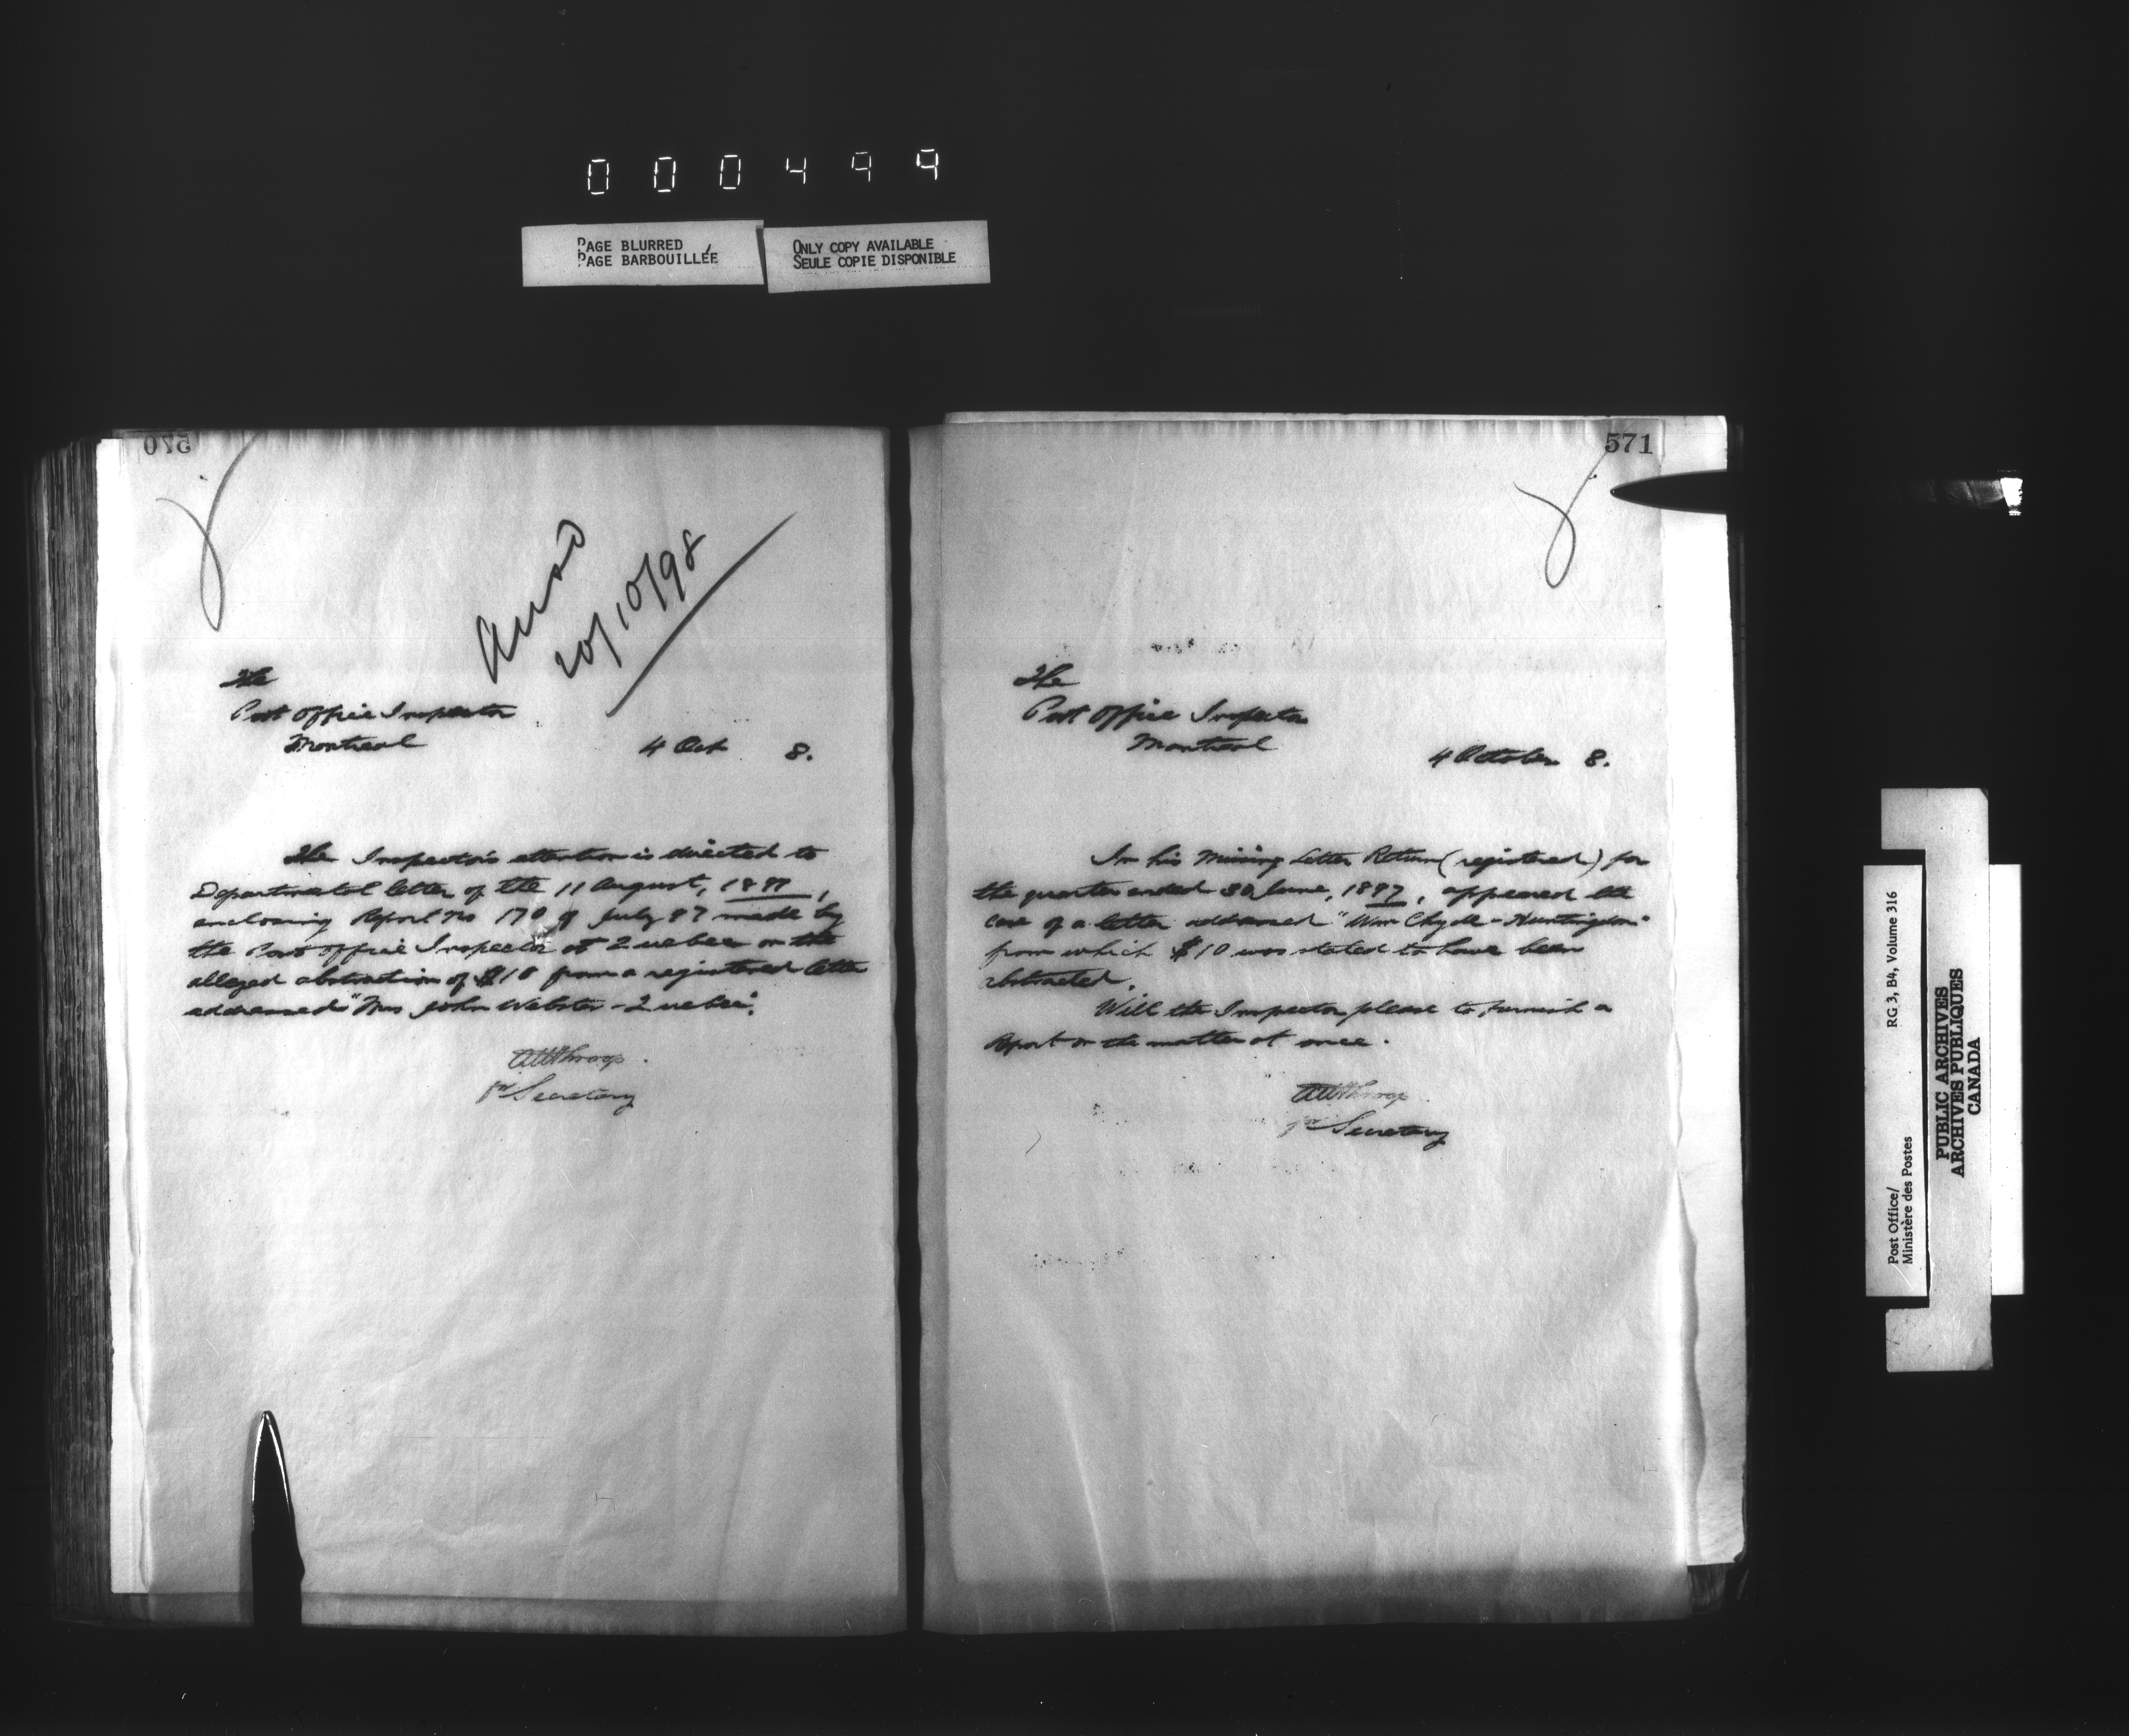 000499
PAGE BLURRED
PAGE BARBOUILLÉE
ONLY COPY AVAILABLE
SEULE COPIE DISPONIBLE
570
20/10/98
The
Post Office Inspector
Montreal
4 Oct 8.
The Inspector's attention is directed to
Departmental letter of the 11 August, 1897,
enclosing Report No 170 of July 97 made by
the Post Office Inspector at Quebec on the
alleged abstraction of $10 from a registered letter
addressed "Mrs John Webster - Quebec".
AW Throop.
pr Secretary
571
The
Post Office Inspector
Montreal
4 October 8.
In his Missing Letter Return (registered) for
the quarter ended 30 June, 1897, appeared the
case of a letter addressed "Wm Clyde - Huntingdon"
from which $10 was stated to have been
abstracted.
Will the Inspector please to furnish a
Report on the matter at once.
AW Throop.
pr Secretary
Post Office/
Ministère des Postes
RG 3, B4, Volume 316
PUBLIC ARCHIVES
ARCHIVES PUBLIQUES
CANADA